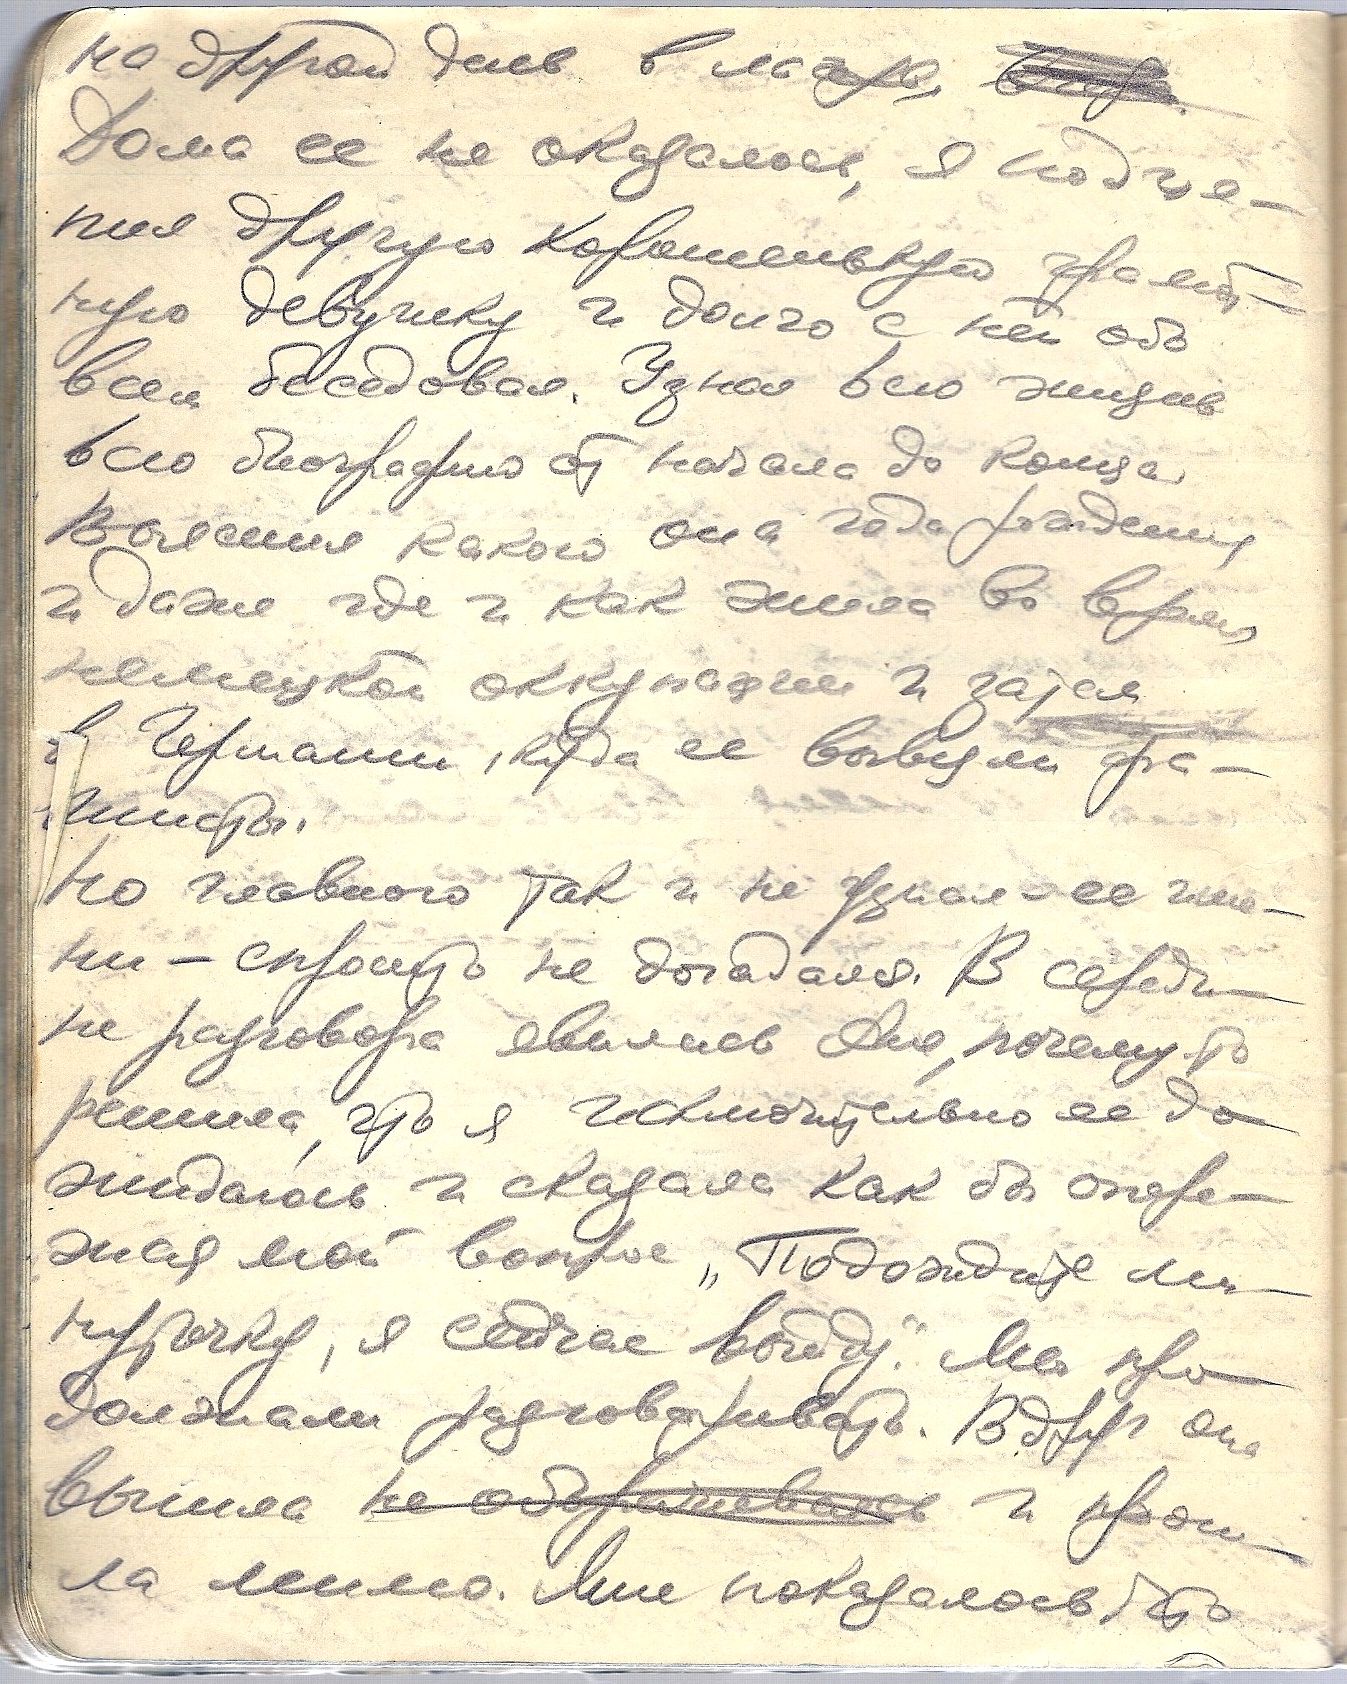 на другой день в лагерь,
Дома ее не оказалось, я подце-
пил другую хорошенькую грамот-
ную девушку и долго с ней обо
всем беседовал. Узнал всю жизнь
всю биографию от начала до конца,
Выяснил какого она года рождения
и даже где и как жила во время
немецкой оккупации и затем
в Германии, куда ее вывезли фа-
шисты.
Но главного так и не узнал - ее име-
ни - спросить не догадался. В середи-
не разговора явилась Аня, почему то
решила, что я исключительно ее до-
жидаюсь и сказала как бы опере-
жая мой вопрос „Подождите ми-
нуточку, я сейчас выйду". Мы про-
должали разговаривать. Вдруг она
вышла не оборачиваясь и прош-
ла мимо. Мне показалось что